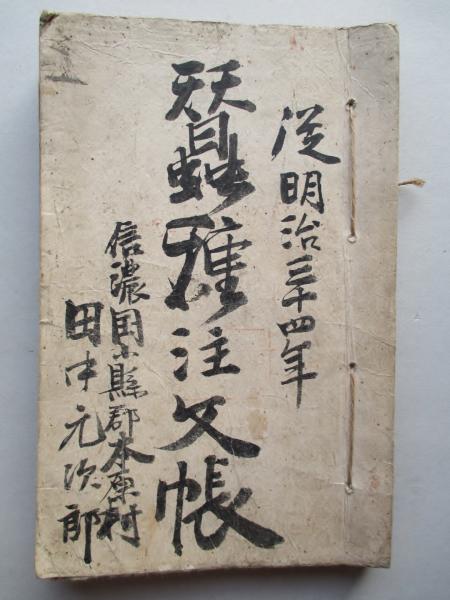 従明治三十四年
蠶種注文帳
信濃国小縣郡本原村
田中元次郎